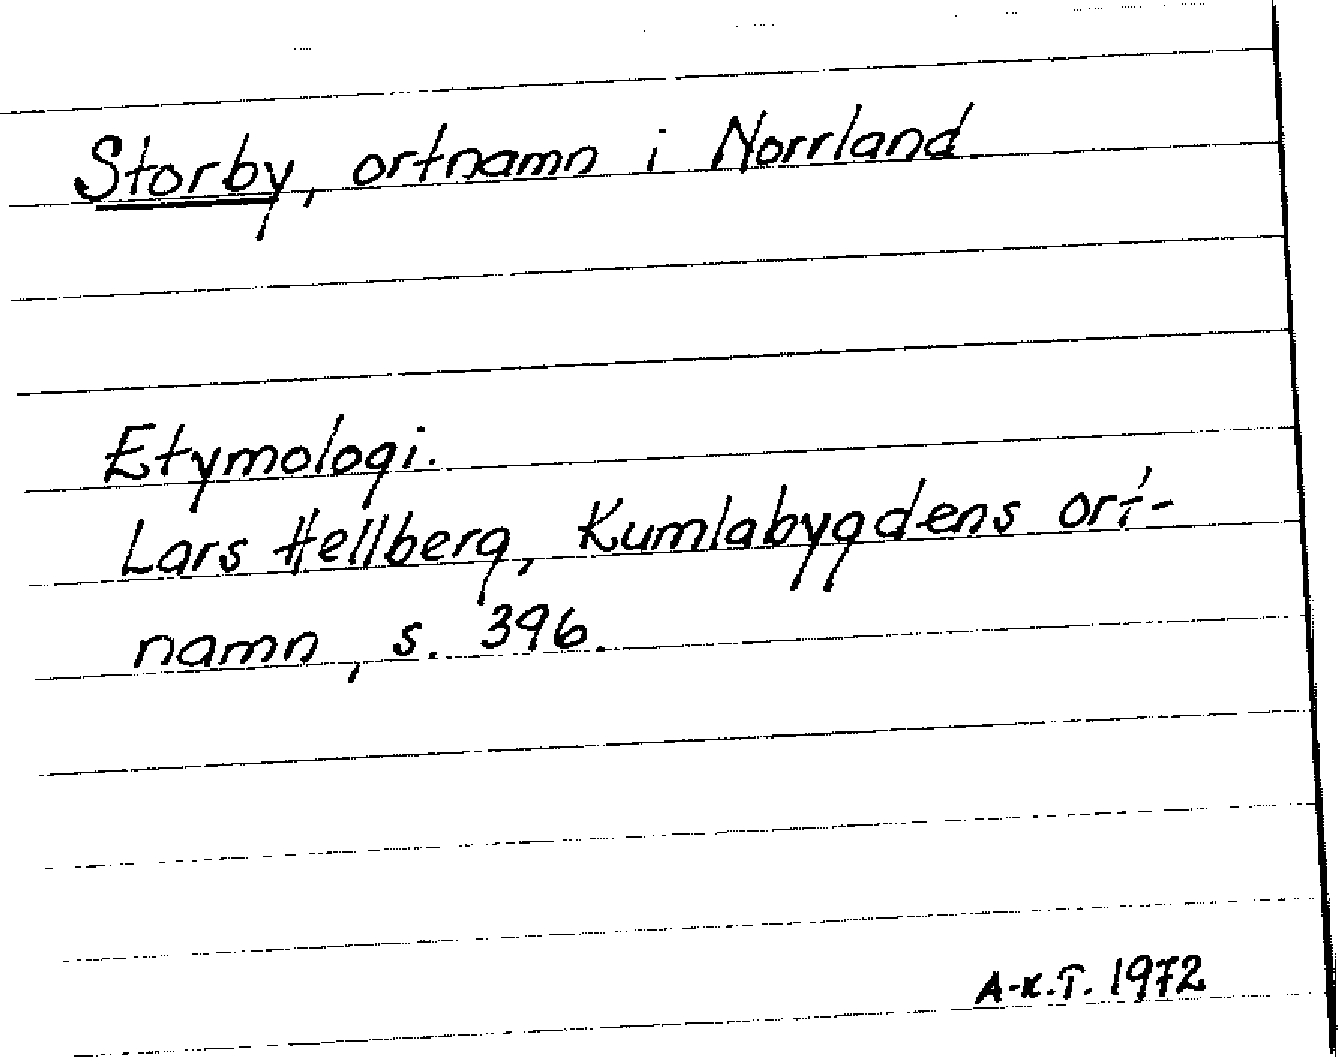 Storby, ortnamn i Norrland
Etymologi.
Lars Hellberg, Kumlabygdens ort-
namn, s. 396.
A-K.T. 1972